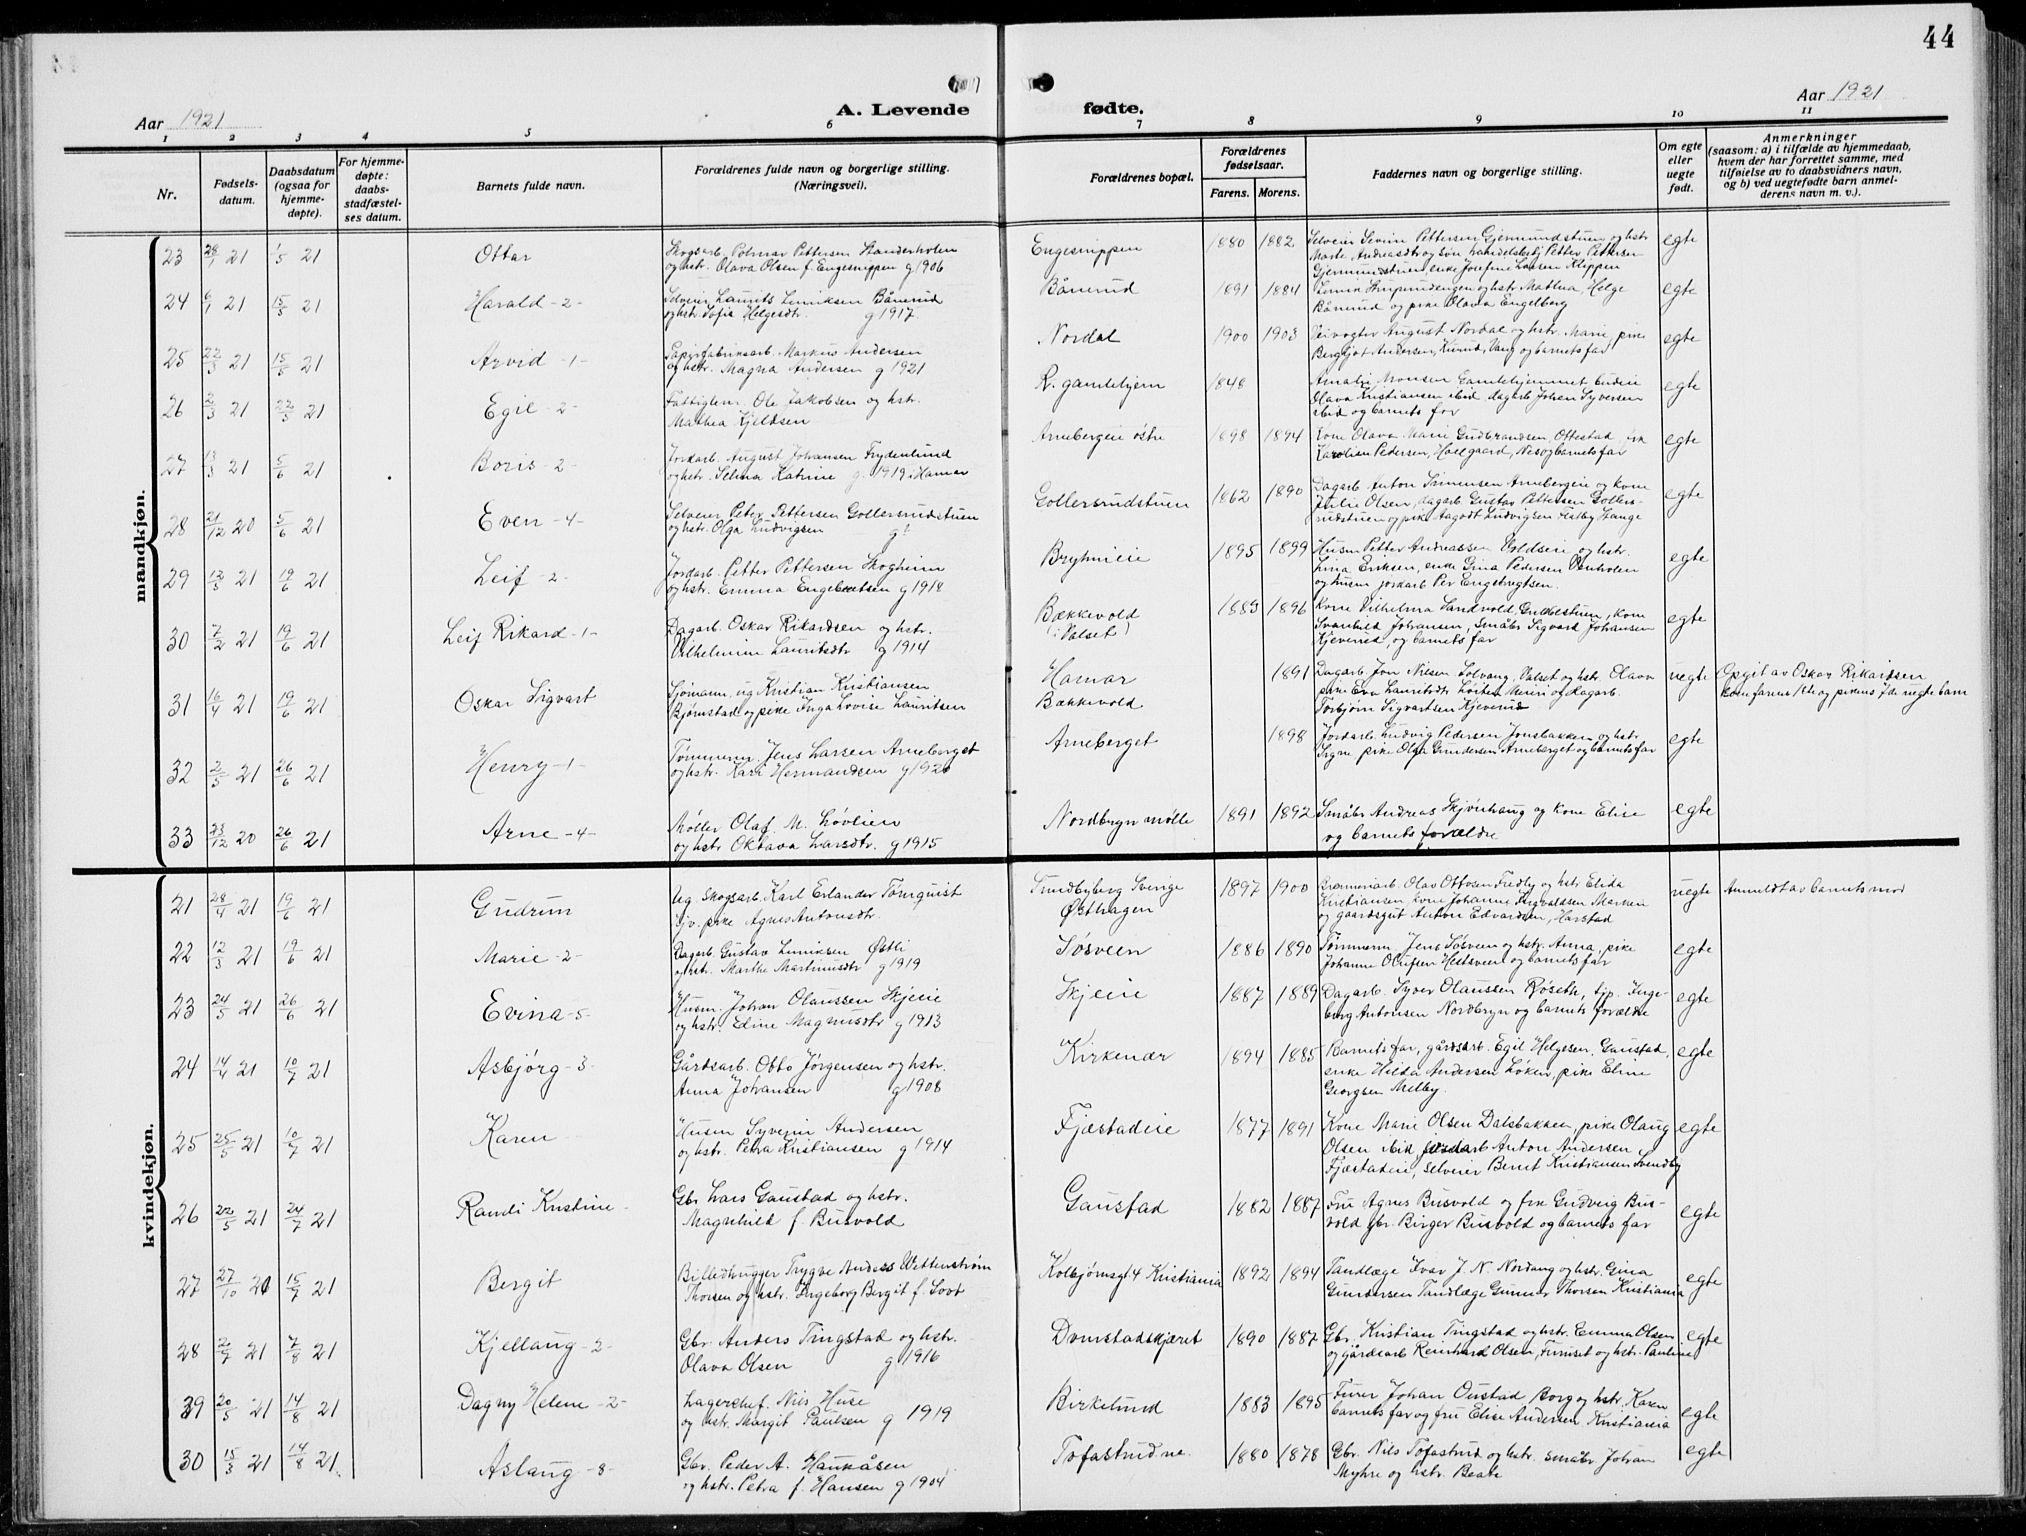 44
Aar 1921
A. Levende
fødte.
Aar 1921
1 2 3 4 5 6 7 8 9 10 11
Nr.
Fødsels-
datum.
Daabsdatum
(ogsaa for
hjemme-
døpte).
For hjemme-
døpte:
daabs-
stadfæstel-
ses datum.
Barnets fulde navn.
Forældrenes fulde navn og borgerlige stilling.
(Næringsvei).
Forældrenes bopæl.
Forældrenes
fødselsaar.
Farens. Morens.
Faddernes navn og borgerlige stilling.
Om egte
eller
uegte
født.
Anmerkninger
(saasom: a) i tilfælde av hjemmedaab,
hvem der har forrettet samme, med
tilføielse av to daabsvidners navn,
og b) ved uegtefødte barn anmel-
derens navn m. v.).
mandkjøn.
23 21 1/5 21 Ottar
og hstr. Olava Olsen f. Engesnippen g 1906
Engesnippen 1880 1882 egte
24 6/1 21 15/5 21 Harald - 2 -
Selveier Laurits Linniksen Bånerud
og hstr. Sofie Helgesdtr. g 1917
Bånerud 1891 1884
Bånerud og pike Olava Engelberg
egte
25 22/3 21 15/5 21 Arvid - 1 -
Papirfabriksarb. Markus Andersen
og hstr. Magna Andersen g 1921
Nordal 1900 1903
Veivogter August Nordal og hstr. Marie, pike
Bergljot Andersen, Kurud, Vang og barnets far
egte
26 2/3 21 22/5 21 Egil - 2 -
Fattiglem Ole Jakobsen og hstr.
Mathea Kjeldsen
R. gamlehjem 1848
Amalie Monsen Gamlehjemmet, budeie
Olava Kristiansen ibid, dagarb. Johan Syversen
ibid og barnets far
egte
27 13/3 21 5/6 21 Boris - 2 -
Jordarb. August Johansen Frydenlund
og hstr. Selma Katrine g 1919 i Hamar
Arnebergeie østre 1898 1894
Kone Olava Marie Gudbrandsen, Ottestad, frk
Karoline Pedersen, Hoelgaard, Nes og barnets far
egte
28 21/12 20 5/6 21 Even - 4 -
Selveier Peter Pettersen Gollersrudstuen
og hstr. Olga Ludvigsen g?
Gollersrudstuen 1862 1890
Dagarb. Anton Simensen Arnebergeie og kone
Julie Olsen, dagarb. Gustav Pettersen Gollers-
rudstuen og pike Aagodt Ludvigsen Flatby Stange
egte
29 21 19/6 21 Leif - 2 -
Jordarb. Petter Pettersen Skogheim
og hstr. Emma Engebretsen g 1918
Brynieie 1895 1899
Husm Petter Andreassen Holdseie og hstr.
Lina Eriksen, enke Gina Pedersen Venholen
og husm jordarb Per Engebregtsen.
egte
30 7/2 21 19/6 21 Leif Rikard - 1 -
Dagarb. Oskar Rikardsen og hstr.
Vilhelmine Lauritsdtr g 1914
Bækkevold
(i Valset) 1883 1896
Kone Vilhelma Sandvold, Gubbestuen, kone
Svanhild Johansen, Småbr Sigvard Johansen
Kjeverud, og barnets far
egte
31 16/4 21 19/6 21 Oskar Sigvart
Sjømann, ug Kristian Kristiansen
Bjørnstad og pike Inga Lovise Lauritsen
Hamar
Bækkevold 1891
Dagarb. Jon Nilsen Solvang, Valset og hstr. Olava
pike Eva Lauritsdtr Løiten Menig og dagarb.
Torbjørn Sigvartsen Kjeverud
uegte
Opgit av Oskar Rikardsen
barnfarens 1ste og pikens 1de uegte barn
32 2/5 21 26/6 21 Henry - 1 -
Tømmerm. Jens Larsen Arneberget
og hstr. Kari Hermandsen g 1920
Arneberget 1898
Jordarb. Ludvig Pedersen Jonsbakken og hstr.
Signe, pike Olga Gundersen Arneberget og barnets far
egte
33 23/12 20 26/6 21 Arne - 4 -
Møller Olaf M. Løvlien
og hstr Oktava Larsdtr. g 1915
Nordbryn mølle 1891 1892
Småbr Andreas Skjønhaug og kone Elise
og barnets forældre
egte
kvindekjøn.
21 28/4 21 19/6 21 Gudrun
Ug. Skogsarb. Karl Erlander Tørnquist
tjv. pike Agnes Antonsdtr.
Sundbyberg Sverige
Østhagen 1897 1900
Brænneriarb. Olav Ottosen Fredly og hstr Elida
Kristiansen, kone Johanne Sigvaldsen Marken
og gaardsgut Anton Edvardsen, Harstad
uegte
Anmeldt av barnets mor
22 12/3 21 19/6 21 Marie - 2 -
Dagarb. Gustav Linniksen Østli
og hstr. Marthe Martinusdtr g 1919
Søsveen 1886 1890
Tømmerm. Jens Søsveen og hstr. Anna, pike
Johanne Olufsen Hestsveen og barnets far
egte
23 24/5 21 26/6 21 Evina - 5 -
Husm. Johan Olaussen Skjeie
og hstr. Edine Magnusdtr g 1913
Skjeie 1887 1889
Dagarb. Syver Olaussen Røseth, tjp. Inge-
borg Antonsen Nordbryn og barnets forældre
egte
24 14/4 21 10/7 21 Asbjørg - 3 -
Gårdsarb. Otto Jørgensen og hstr.
Anna Johansen g 1908
Kirkenær 1894 1885
Barnets far, gårdsarb. Egil Helgesen, Gaustad,
enke Hilda Andersen Løken, pike Eline
Georgsen Melby.
egte
25 25/5 21 10/7 21 Karen
Husm Syverin Andersen
og hstr. Petra Kristiansen g 1914
Fjæstadeie 1877 1891
Kone Marie Olsen Dalsbakken, pike Olaug
Olsen ibid, jordarb Anton Andersen
Fjæstadeie, selveier Bernt Kristiansen Svendby
egte
26 22/5 21 24/7 21 Randi Kristine
Gbr Lars Gaustad og hstr.
Magnhild f. Busvold
Gaustad 1882 1887
Fru Agnes Busvold og frk Gudveig Bus-
vold gbr. Birger Busvold og barnets far
egte
27 27/10 20 15/7 21 Bergit
Billedhugger Trygve Anders Wetterstrøm
Thorsen og hstr. Ingeborg Bergit f. Loot
Kolbjørnsgt 4 Kristiania 1892 1894
Tandlæge Ivar J. N. Nordang og hstr. Gina
Gundersen Tandlæge Gunnar Thorsen Kristiania
egte
28 2/7 21 7/8 21 Kjellaug - 2 -
Gbr. Anders Tingstad og hstr.
Olava Olsen g 1916
Domstadskjæret 1890 1887
Gbr. Kristian Tingstad og hstr. Emma Olsen
og gårdsarb Reinhard Olsen, Furuset og hstr. Pauline
egte
29 20/5 21 14/8 21 Dagny Helene - 2 -
Lagerchef. Nils Huse
og hstr. Margit Paulsen g 1919
Birkelund 1883 1895
Furer Johan Oustad Borg og hstr. Karen
barnets far og fru Elise Andersen Kristiania
egte
30 15/3 21 14/8 21 Aslaug - 8 -
Gbr. Peder A. Haukåsen
og hstr. Petra f. Hansen g 1904
Tofastrud ne. 1880 1878
Gbr. Nils Tofastrud og hstr. småbr. Johan
Myhre og hstr. Beate
egte